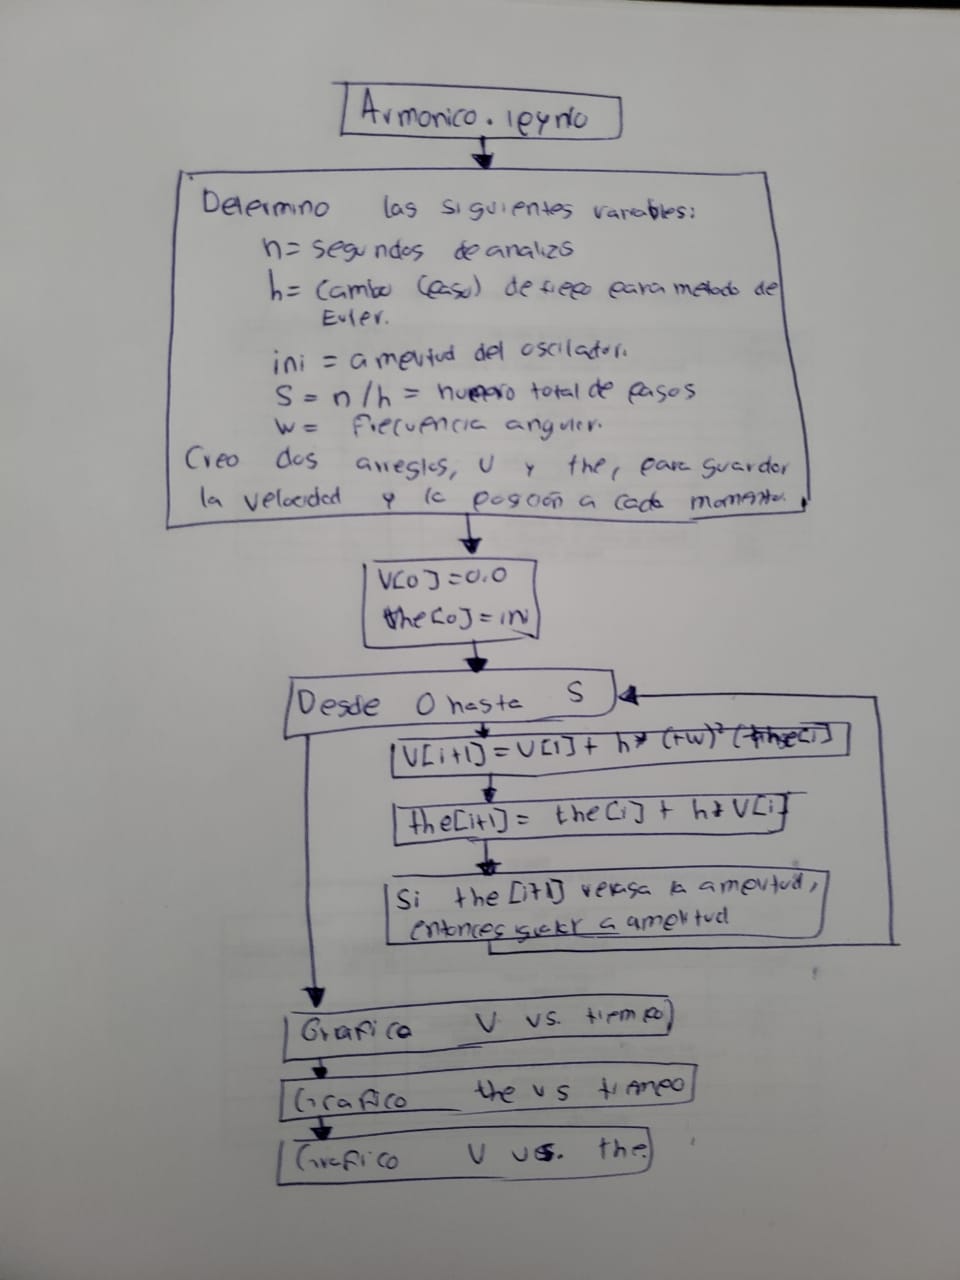 Armonico.ipynb
Determino las siguientes variables:
n= segundos de analizis
h= Cambio (paso) de tiempo para metodo de
Euler.
ini = amplitud del oscilador.
S = n/h = numero total de pasos
w= frecuencia angular.
Creo dos arreglos, v y the, para guardar
la velocidad y la posición a cada momento.
V[0]=0.0
the[0]=ini
Desde 0 hasta S
V[i+1]=V[i]+ h* (-w)² (the[i])
the[i+1]= the[i] + h*V[i]
Si the[i+1] rebasa la amplitud,
entonces a amplitud
Grafico V vs. tiempo
Grafico the vs tiempo
Grafico V vs. the